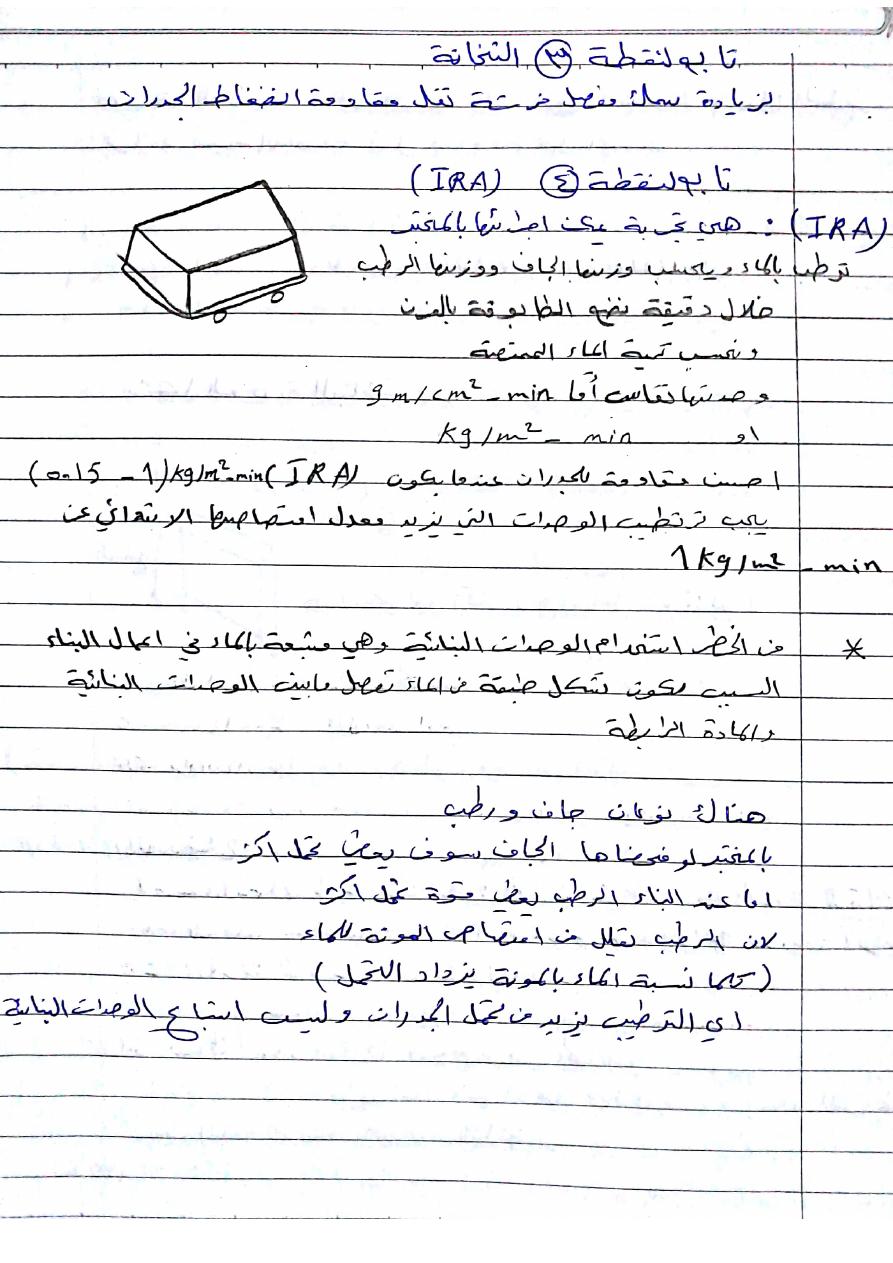 تابع لنقطة ③ الثخانة
بزيادة سمك مفصل فرشة تقل مقاومة انضغاط الجدران
تابع لنقطة ④ (IRA)
(IRA) : هي تجربة يمكن اجرائها بالمختبر
ترطب بالماء ويحسب وزنها الجاف ووزنها الرطب
خلال دقيقة نضع الطابوقة بالفرن
ونحسب كمية الماء الممتصة
وحدتها تقاس أما gm/cm² - min
او kg/m² - min
احسن مقاومة للجدران عندما يكون (IRA) (0.15 - 1) kg/m².min
يجب ترطيب الوحدات التي يزيد معدل امتصاصها الابتدائي عن
1 kg/m² - min
* من الخطر استخدام الوحدات البنائية وهي مشبعة بالماء في اعمال البناء
السبب يكون تشكل طبقة من الماء تفصل مابين الوحدات البنائية
والمادة الرابطة
هناك نوعان جاف ورطب
بالمختبر لو فحصناها الجاف سوف يعطي تحمل اكثر
اما عند البناء الرطب يعطي قوة تحمل اكثر
لان الرطب يقلل من امتصاص المونة للماء
(كلما نسبة الماء بالمونة يزداد التحمل)
اي الترطيب يزيد من تحمل الجدران وليس اشباع الوحدات البنائية